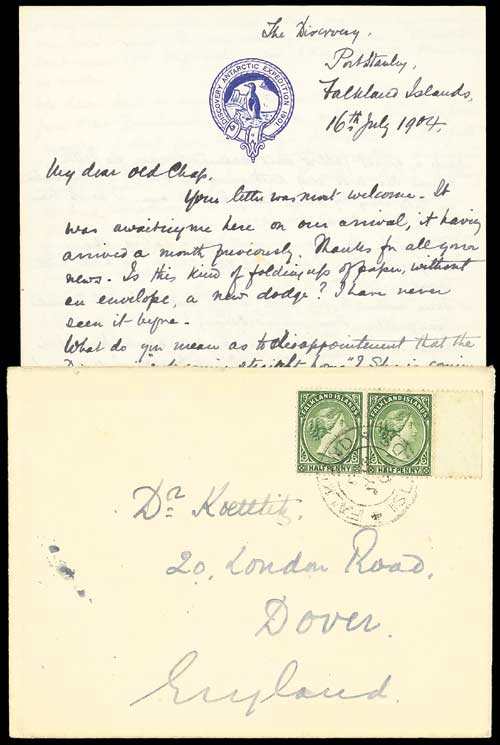 The Discovery,
Port Stanley,
Falkland Islands,
16th July 1904.
DISCOVERY ANTARCTIC EXPEDITION 1901
My dear old Chap,
Your letter was most welcome. It
was awaiting me here on our arrival, it having
arrived a month previously. Thanks for all your
news. Is this kind of folding up of paper, without
an envelope, a new dodge? I have never
seen it before.
What do you mean as to disappointement that the
straight home"? She is
FALKLAND ISLANDS
HALF PENNY
FALKLAND ISLANDS
HALF PENNY
FALKLAND ISL
Dr. Koettlitz,
20, London Road,
Dover.
England.